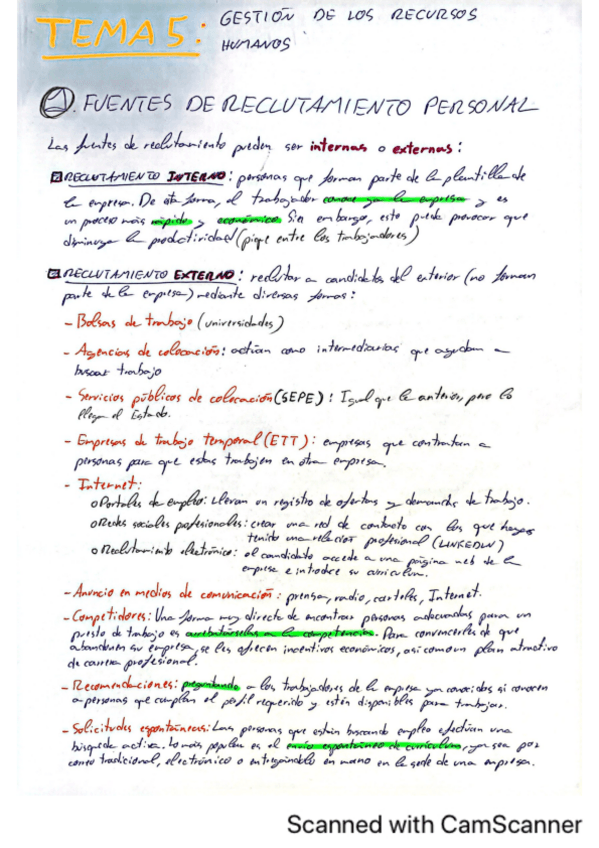 TEMA 5: GESTIÓN DE LOS RECURSOS
HUMANOS
FUENTES DE RECLUTAMIENTO PERSONAL
Las fuentes de reclutamiento pueden ser internas o externas:
RECLUTAMIENTO INTERNO: personas que forman parte de la plantilla de
la empresa. De esta forma, el trabajador conoce ya la empresa y es
un proceso más rápido y económico. Sin embargo, esto puede provocar que
disminuya la productividad (pique entre los trabajadores)
RECLUTAMIENTO EXTERNO: reclutar a candidatos del exterior (no forman
parte de la empresa) mediante diversas formas:
- Bolsas de trabajo (universidades)
- Agencias de colocación: actúan como intermediarias que ayudan a
buscar trabajo
- Servicios públicos de colocación (SEPE): Igual que la anterior, pero lo
lleva el Estado.
- Empresas de trabajo temporal (ETT): empresas que contratan a
personas para que estas trabajen en otra empresa.
- Internet:
o Portales de empleo: Llevan un registro de ofertas y demandas de trabajo.
o Redes sociales profesionales: crear una red de contacto con los que hayas
tenido una relación profesional (LINKEDLN)
o Reclutamiento electrónico: el candidato accede a una página web de la
empresa e introduce su currículum.
- Anuncio en medios de comunicación: prensa, radio, carteles, Internet.
- Competidores: Una forma muy directa de encontrar personas adecuadas para un
puesto de trabajo es arrebatárselas a la competencia. Para convencerles de que
abandonen su empresa, se les ofrecen incentivos económicos, así como un plan atractivo
de carrera profesional.
- Recomendaciones: preguntando a los trabajadores de la empresa ya conocidos si conocen
a personas que cumplan el perfil requerido y estén disponibles para trabajar.
- Solicitudes espontáneas: Las personas que están buscando empleo efectúan una
búsqueda activa. Lo más popular es el envío espontáneo de currículum, ya sea por
correo tradicional, electrónico o entregándolo en mano en la sede de una empresa.
Scanned with CamScanner